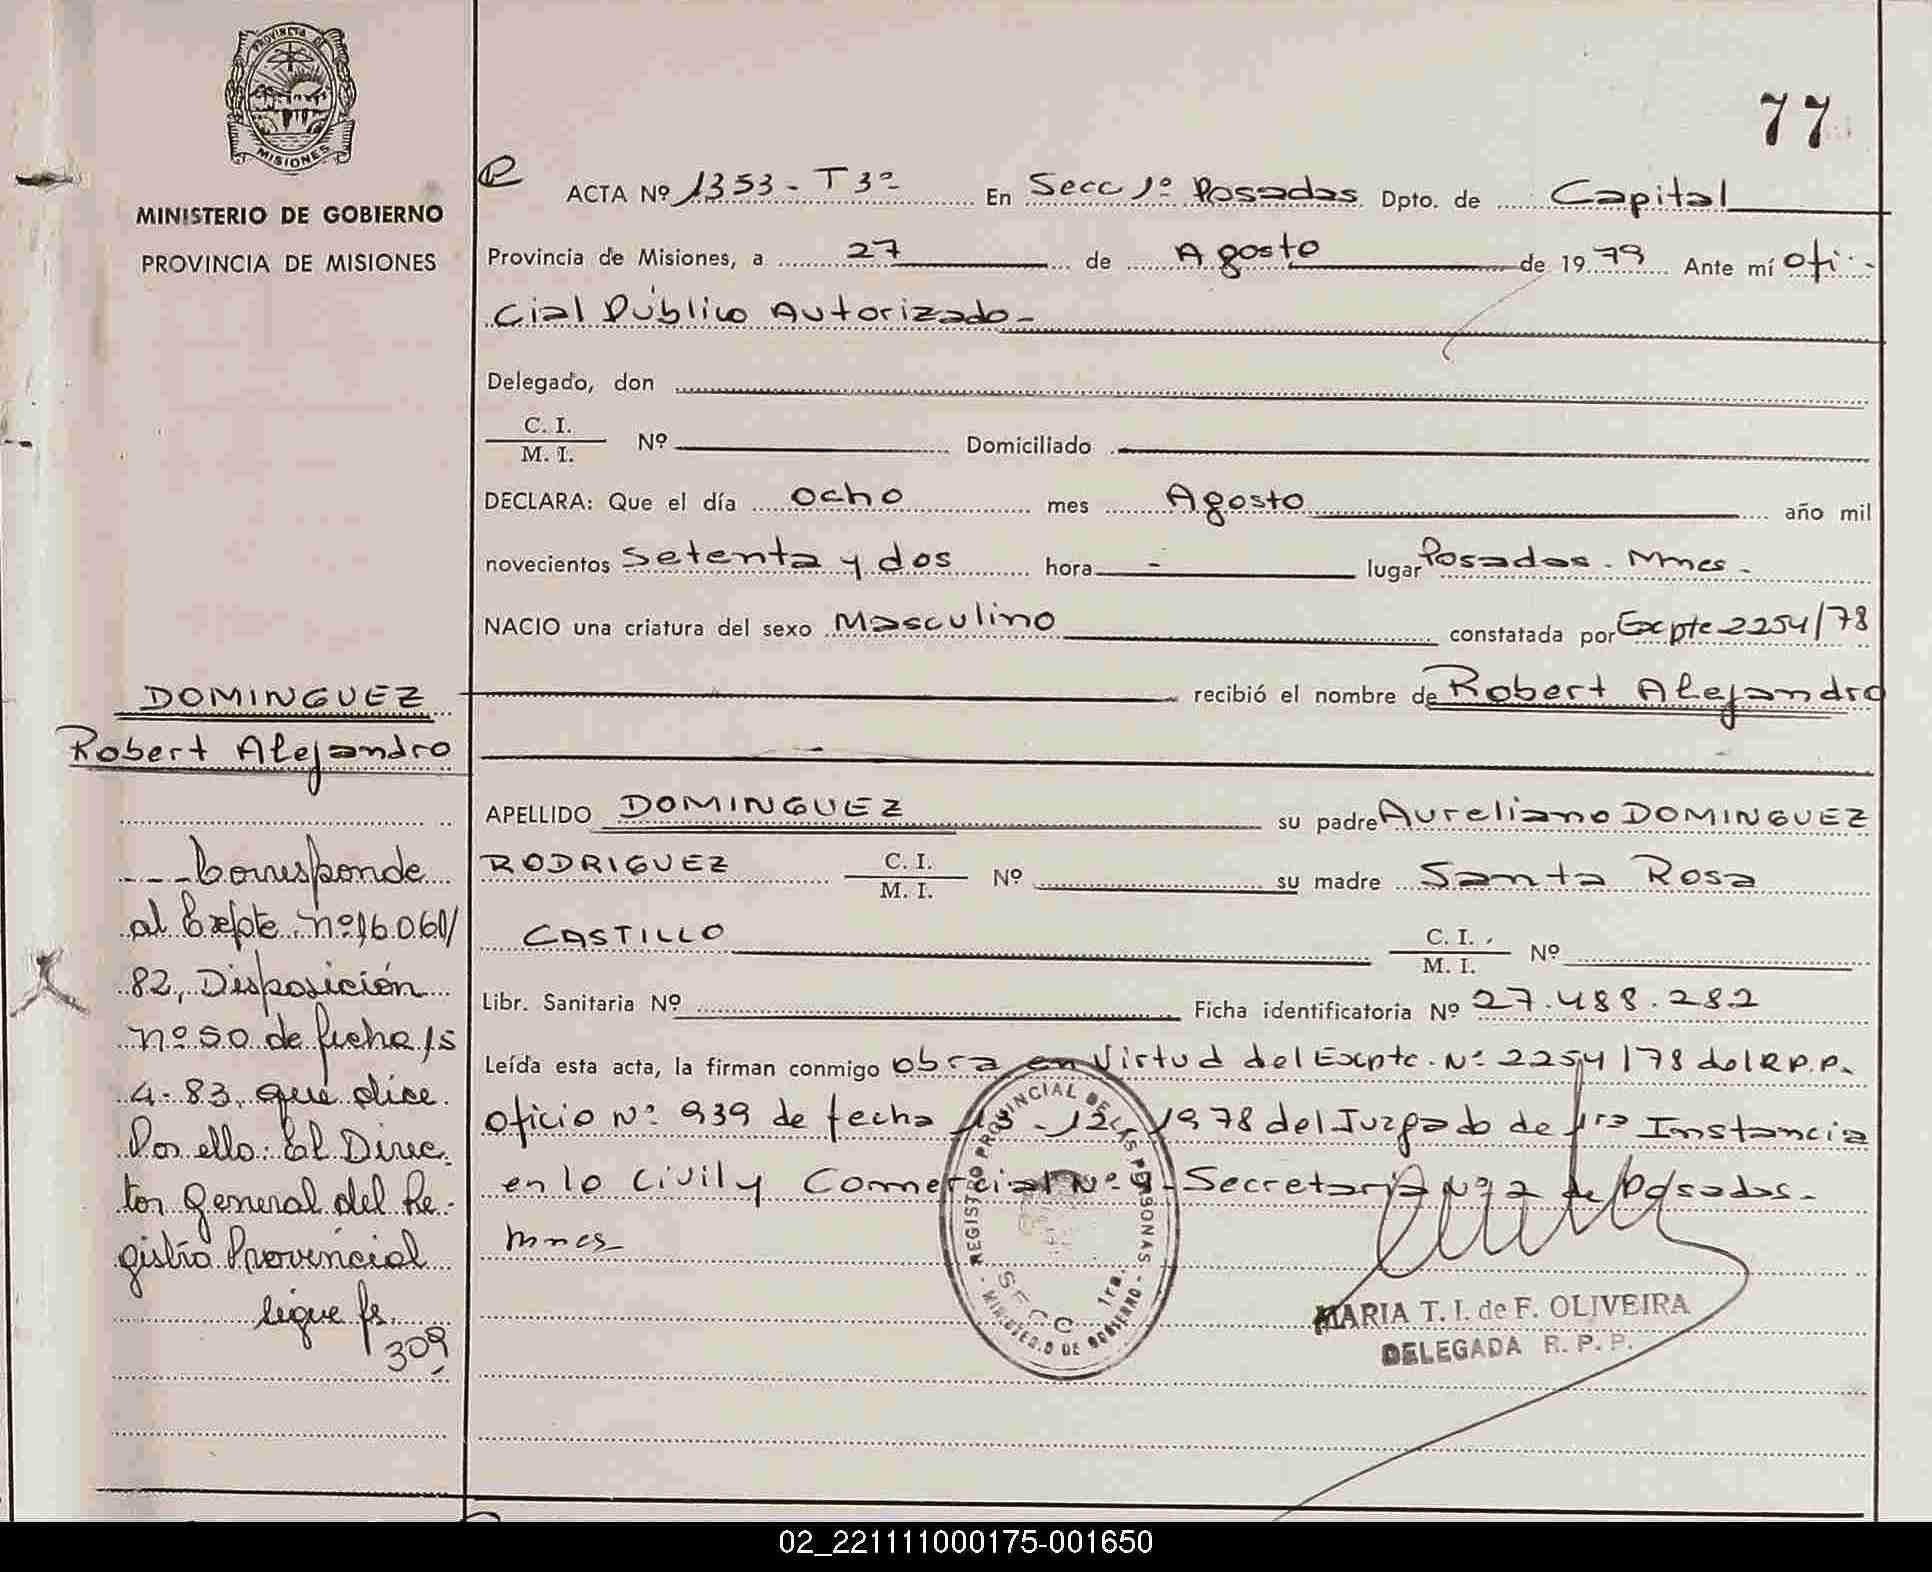 PROVINCIA DE
MISIONES
MINISTERIO DE GOBIERNO
PROVINCIA DE MISIONES
77
ACTA Nº 1353 - T 3º En Secc 1º Posadas Dpto. de Capital
Provincia de Misiones, a 27 de Agosto de 1979 Ante mí Ofi-
cial Público Autorizado-
Delegado, don
C. I.
M. I. Nº Domiciliado
DECLARA: Que el día ocho mes Agosto año mil
novecientos Setenta y dos hora - lugar Posadas. Mnes-
NACIO una criatura del sexo Masculino constatada por Expte 2254/78
recibió el nombre de Robert Alejandro
APELLIDO DOMINGUEZ su padre Aureliano DOMINGUEZ
RODRIGUEZ C. I. M. I. Nº su madre Santa Rosa
CASTILLO C. I. M. I. Nº
Libr. Sanitaria Nº Ficha identificatoria Nº 27.488.282
Leída esta acta, la firman conmigo obra en Virtud del Expte. Nº 2254/78 del R.P.P.
Oficio Nº 939 de fecha 13-12-1978 del Juzgado de 1ra Instancia
en lo Civil y Comercial Nº Secretaria Nº 2 de Posadas-
Mnes
REGISTRO PROVINCIAL DE LAS PERSONAS
SECC. 1ra.
MINISTERIO DE GOBIERNO
MARIA T. I. de F. OLIVEIRA
DELEGADA R. P. P.
DOMINGUEZ
Robert Alejandro
---Corresponde
al Expte. nº 16.060/
82, Disposición
nº 50 de fecha 15
4-83, que dice
Por ello: El Direc-
tor General del Re-
gistro Provincial
sigue fs.
309
02_221111000175-001650